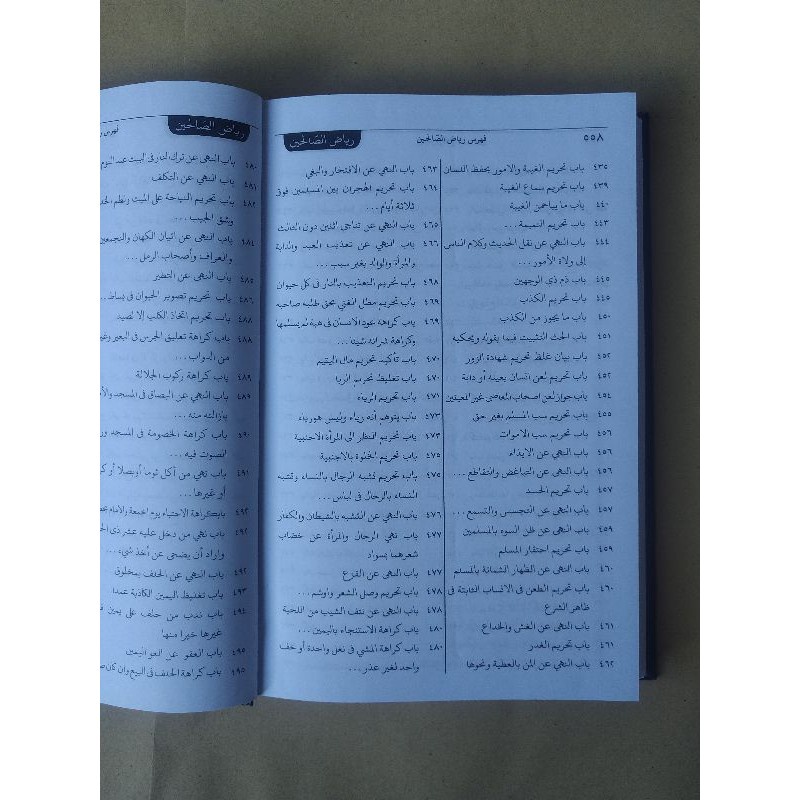 ٥٥٨
فهرس رياض الصالحين
رياض الصالحين
٤٣٥ باب تحريم الغيبة والامور بحفظ اللسان
٤٣٩ باب تحريم سماع الغيبة
٤٤٠ باب ما يباح من الغيبة
٤٤٣ باب تحريم النميمة...
٤٤٤ باب النهي عن نقل الحديث وكلام الناس
إلى ولاة الأمور...
٤٤٥ باب ذم ذي الوجهين
٤٤٥ باب تحريم الكذب
٤٥٠ باب ما يجوز من الكذب
٤٥١ باب الحث التثبيت فيما يقوله ويحكيه
٤٥٢ باب بيان غلظ تحريم شهادة الزور
٤٥٢ باب تحريم لعن انسان بعينه أو دابة
٤٥٤ باب جواز لعن اصحاب المعاصي غير المعينين
٤٥٥ باب تحريم سب المسلم بغير حق
٤٥٦ باب تحريم سب الاموات
٤٥٦ باب النهي عن الايذاء
٤٥٦ باب النهي عن التباغض والتقاطع...
٤٥٧ باب تحريم الحسد
٤٥٧ باب النهي عن التجسس والتسمع...
٤٥٩ باب النهي عن ظن السوء بالمسلمين
٤٥٩ باب تحريم احتقار المسلم
٤٦٠ باب النهي عن اظهار الشماتة بالمسلم
٤٦٠ باب تحريم الطعن في الانساب الثابتة في
ظاهر الشرع
٤٦١ باب النهي عن الغش والخداع
٤٦١ باب تحريم الغدر
٤٦٢ باب النهي عن المن بالعطية ونحوها
٤٦٣ باب النهي عن الافتخار والبغي
٤٦٤ باب تحريم الهجران بين المسلمين فوق
ثلاثة أيام...
٤٦٥ باب النهي عن تناجي اثنين دون الثالث
٤٦٦ باب النهي عن تعذيب العبد والدابة
والمرأة والولد بغير سبب...
٤٦٨ باب تحريم التعذيب بالنار في كل حيوان
٤٦٩ باب تحريم مطل الغني بحق طلبه صاحبه
٤٦٩ باب كراهة عود الانسان في هبة لم يسلمها
وكراهة شرائه شيئا...
٤٧٠ باب تأكيد تحريم مال اليتيم
٤٧٠ باب تغليظ تحريم الربا
٤٧١ باب تحريم الرياء
٤٧٣ باب يتوهم أنه رياء وليس هو رياء
٤٧٣ باب تحريم النظر الى المرأة الاجنبية
٤٧٥ باب تحريم الخلوة بالاجنبية
٤٧٥ باب تحريم تشبه الرجال بالنساء وتشبه
النساء بالرجال في لباس...
٤٧٦ باب النهي عن التشبه بالشيطان والكفار
٤٧٧ باب نهي الرجال والمرأة عن خضاب
شعرهما بسواد
٤٧٧ باب النهي عن القزع
٤٧٨ باب تحريم وصل الشعر والوشم...
٤٧٨ باب النهي عن نتف الشيب من اللحية
٤٨٠ باب كراهة الاستنجاء باليمين...
٤٨٠ باب كراهة المشي في نعل واحدة أو خف
واحد لغير عذر...
فهرس
رياض الصالحين
٤٨٠ باب النهي عن ترك النار في البيت عند النوم
٤٨١ باب النهي عن التكلف
٤٨٢ باب تحريم النياحة على الميت ولطم
وشق الجيب...
٤٨٤ باب النهي عن اتيان الكهان والمنجمين
والعراف وأصحاب الرمل...
٤٨٥ باب النهي عن التطير
٤٨٦ باب تحريم تصوير الحيوان في بساط...
٤٨٨ باب تحريم اتخاذ الكلب إلا لصيد
٤٨٨ باب كراهة تعليق الجرس في البعير
من الدواب...
٤٨٩ باب كراهة ركوب الجلالة
٤٨٩ باب النهي عن البصاق في المسجد
بإزالته منه...
٤٩٠ باب كراهة الخصومة في المسجد
الصوت فيه...
٤٩١ باب نهي من أكل ثوما أو بصلا أو
أو غيرها...
٤٩٢ باب كراهة الاحتباء يوم الجمعة والامام
٤٩٢ باب نهي من دخل عليه عشر ذي
واراد أن يضحي عن أخذ شيء...
٤٩٢ باب النهي عن الحلف بمخلوق
٤٩٣ باب تغليظ اليمين الكاذبة عمدا
٤٩٤ باب ندب من حلف على يمين
غيرها خيرا منها
٤٩٥ باب العفو عن لغو اليمين
٤٩٥ باب كراهة الحلف في البيع وان كان